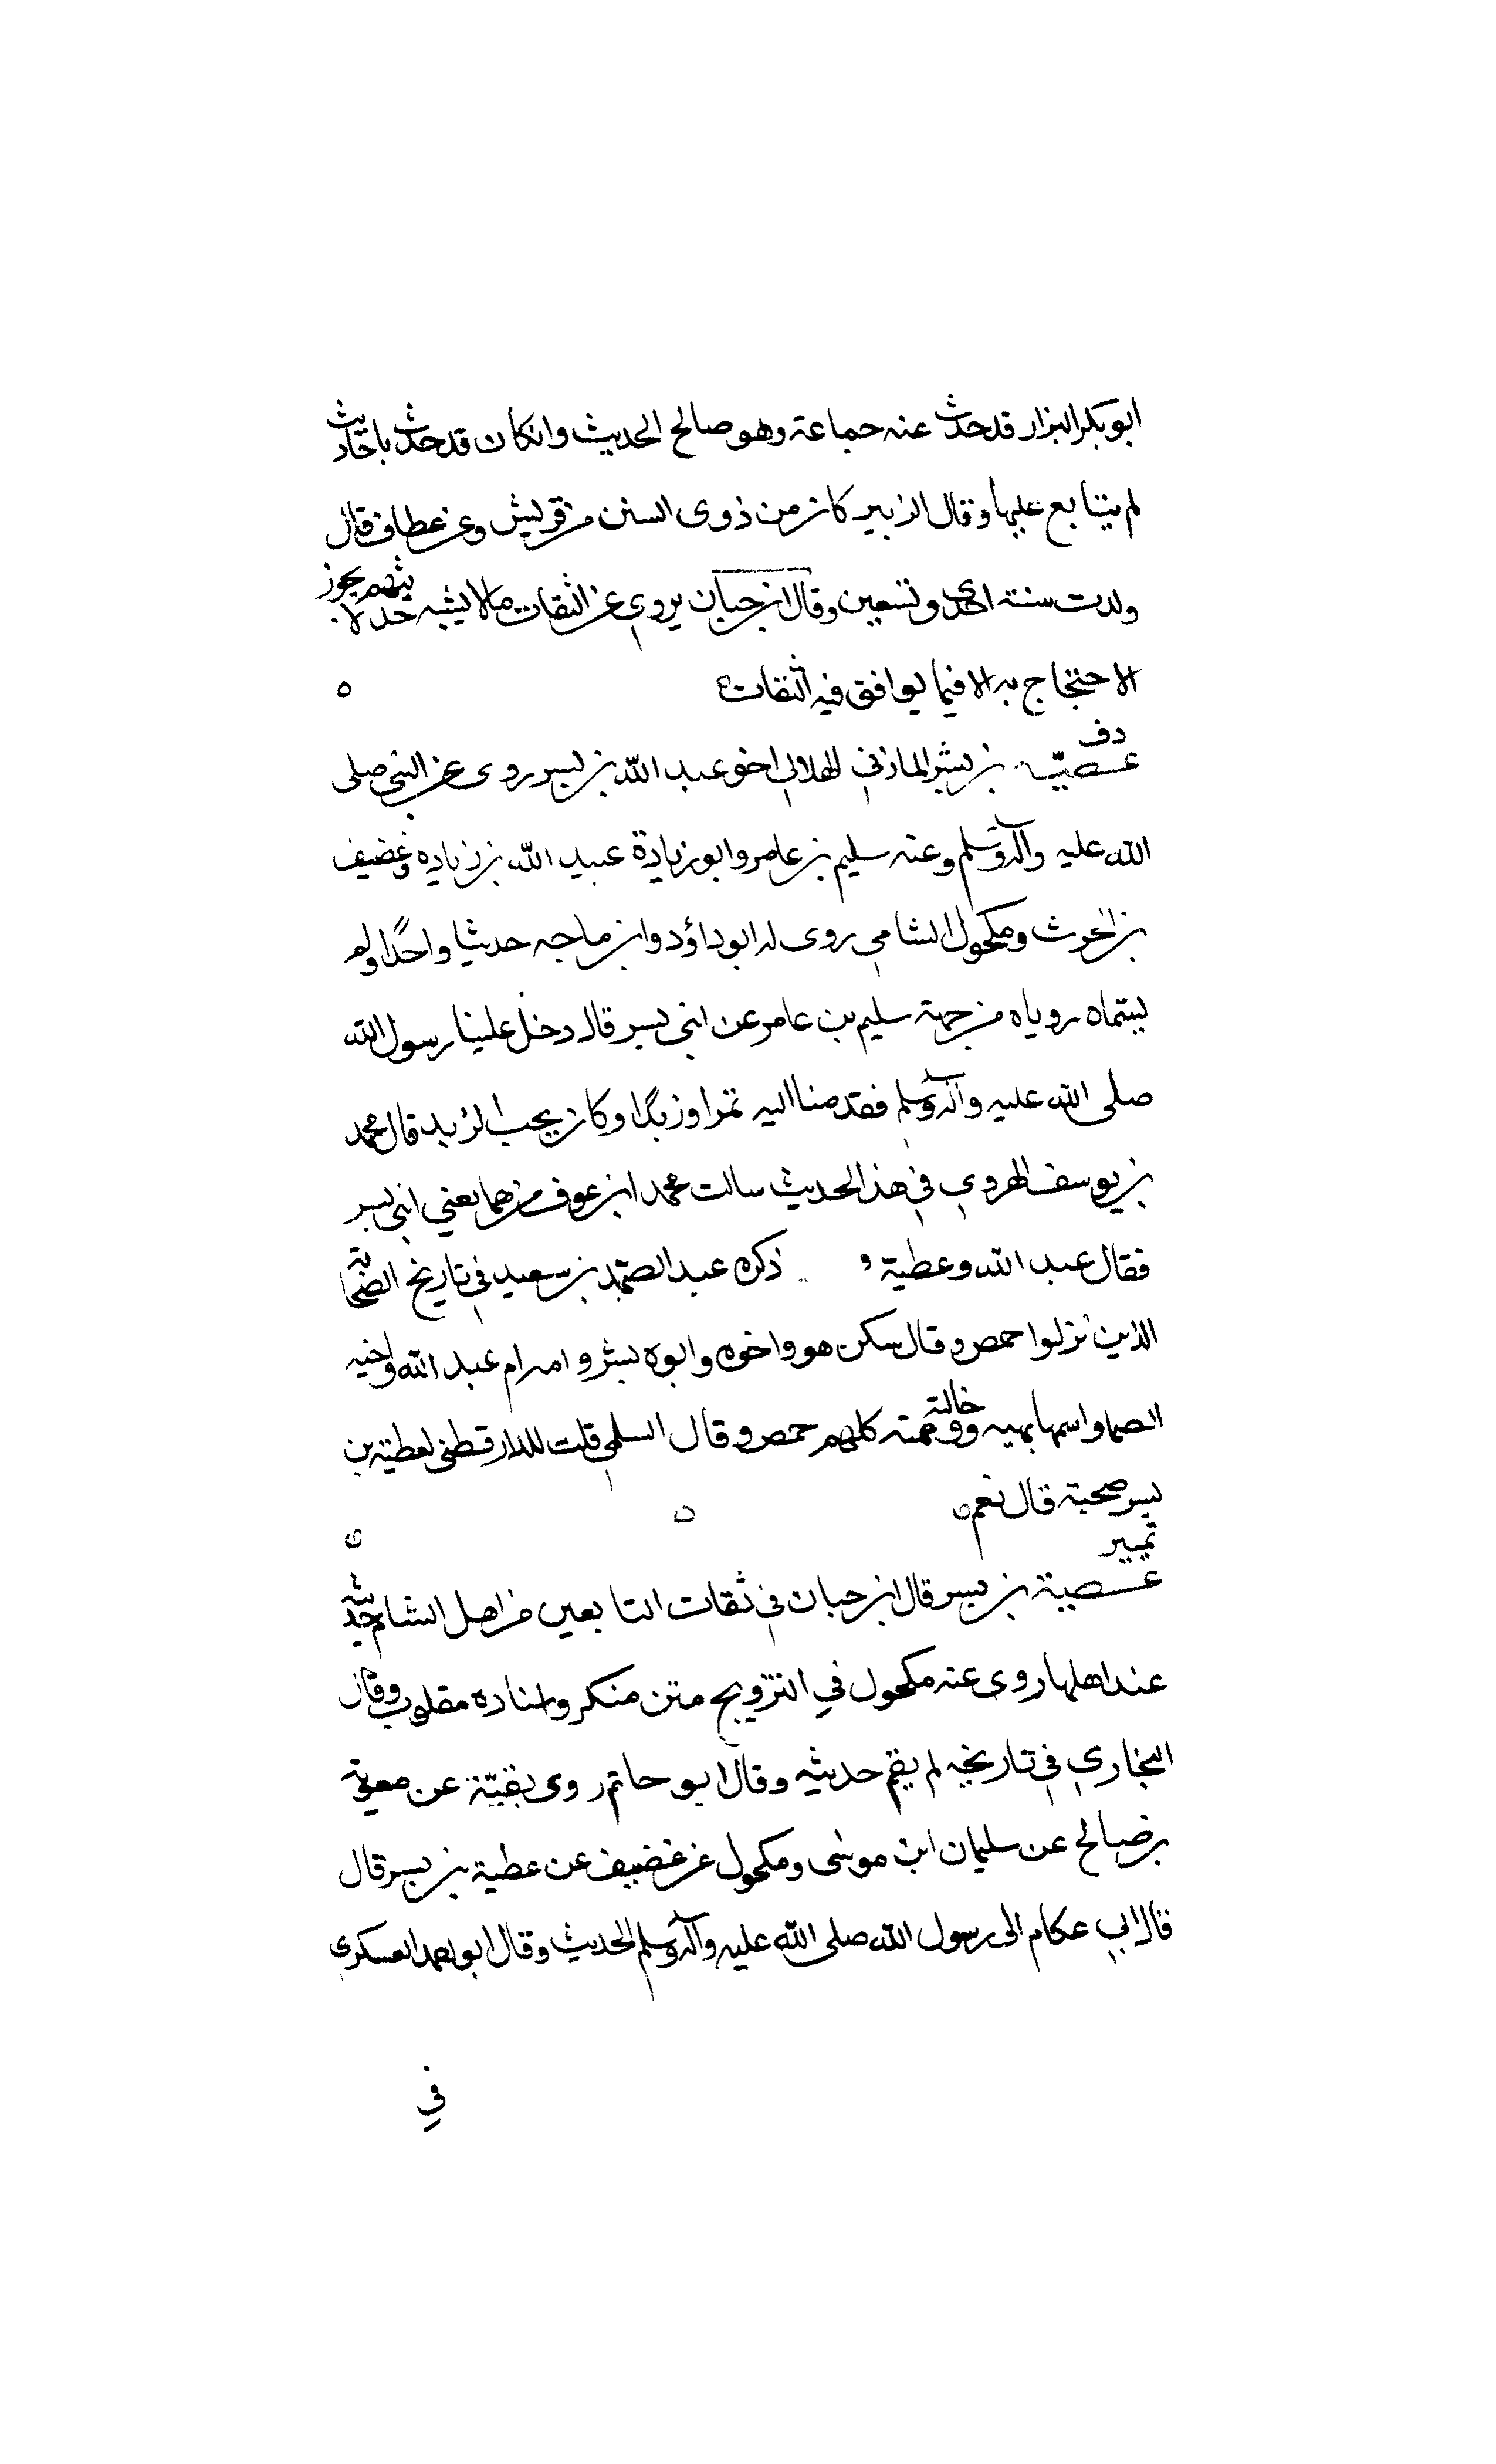 ابو بكر البزار قد حدث عنه جماعة وهو صالح الحديث وان كان قد حدث باحاديث
لم يتابع عليها وقال الزبير كان من ذوى السن من قريش وعن عطاف قال
ولدت سنة احدى وتسعين وقال ابن حبان يروي عن الثقات ما لا يشبه حديثهم لا يجوز
الاحتجاج به الا فيما يوافق فيه الثقات
دف
عطية بن بشر المازني الهلالي اخو عبد الله بن بسر روى عن النبي صلى
الله عليه وآله وسلم وعنه سليم بن عامر وابو زيادة عبيد الله بن زياده وغضيف
بن الحرث ومكحول الشامي روى له ابو داؤد وابن ماجه حديثا واحدًا ولم
يسمياه روياه من جهة سليم بن عامر عن ابني بسر قال دخل علينا رسول الله
صلى الله عليه وآله وسلم فقدمنا اليه تمرا وزبدًا وكان يحب الزبد قال محمد
بن يوسف الهروي في هذا الحديث سالت محمد ابن عوف من هما يعني ابني بسر
فقال عبد الله وعطية و ذكره عبد الصمد بن سعيد في تاريخ الصحابة
الذين نزلوا حمص وقال سكن هو واخوه وابوه بشر وامه ام عبد الله واخيه
الصما واسمها بهيه وخالته وعمته كلهم حمص وقال السلمي قلت للدارقطنى لعطية بن
بسر صحبة قال نعم
تمييز
عطية بن بسر قال ابن حبان في ثقات التابعين من اهل الشام حديثه
عند اهلها روى عنه مكحول في التزويج متن منكر واسناده مقلوب وقال
البخاري في تاريخه لم يقم حديثه وقال ابو حاتم روى بقيّة عن معوية
بن صالح عن سليمان ابن موسى ومكحول عن غضيف عن عطية بن بسر قال
قال ابي عكام الى رسول الله صلى الله عليه وآله وسلم الحديث وقال ابو احمد العسكري
في